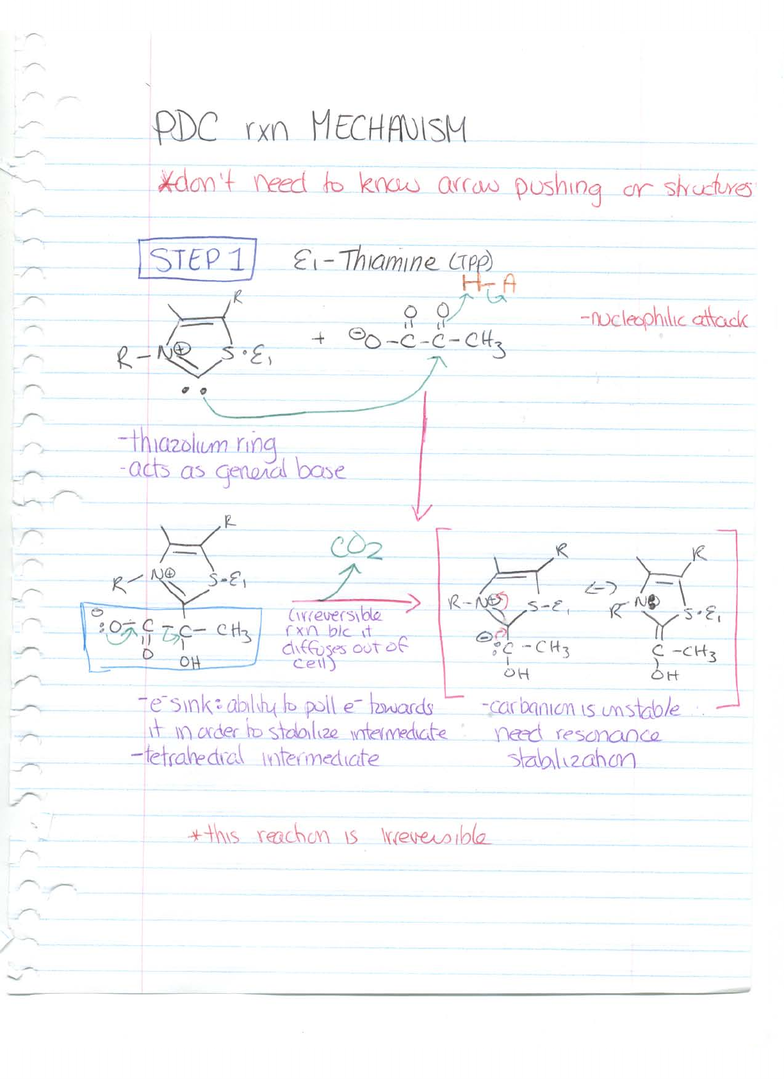 PDC rxn MECHANISM
*don't need to know arrow pushing or structures
STEP 1 E1-Thiamine (TPP)
H-A
-nucleophilic attack
R
R-N⊕ S·E1
+ ⊖O-C-C-CH3
O O
-thiazolium ring
-acts as general base
R
R-N⊕ S-E1
⊖:O-C-C-CH3
O OH
CO2
(irreversible
rxn b/c it
diffuses out of
cell)
R
R-N⊕ S-E1
⊖:C-CH3
OH
<->
R
R-N: S·E1
C-CH3
OH
-e⁻ sink: ability to pull e⁻ towards
it in order to stabilize intermediate
-tetrahedral intermediate
-carbanion is unstable ∴
need resonance
stabilization
*this reaction is irreversible